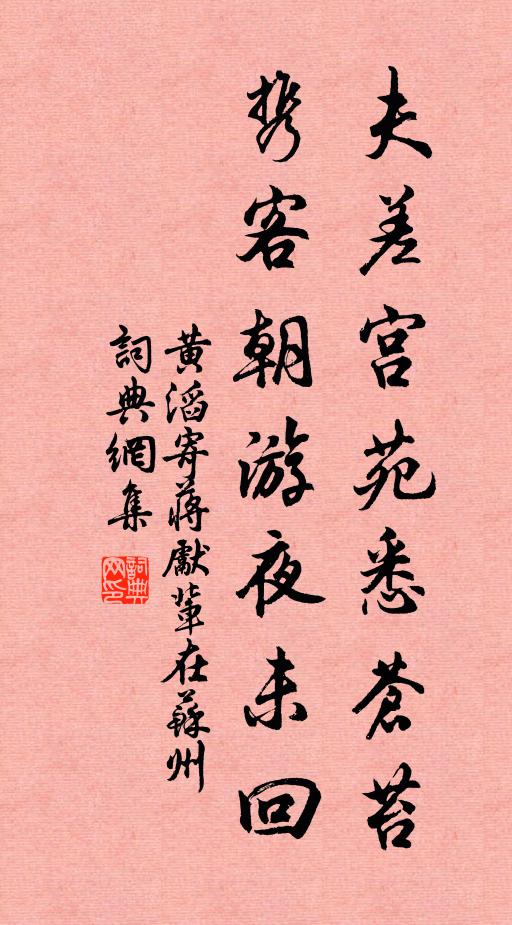 夫差宫苑悉蒼苔
携客朝游夜未回
黄滔寄蔣獻輩在蘇州
詞典網集
詞典网印